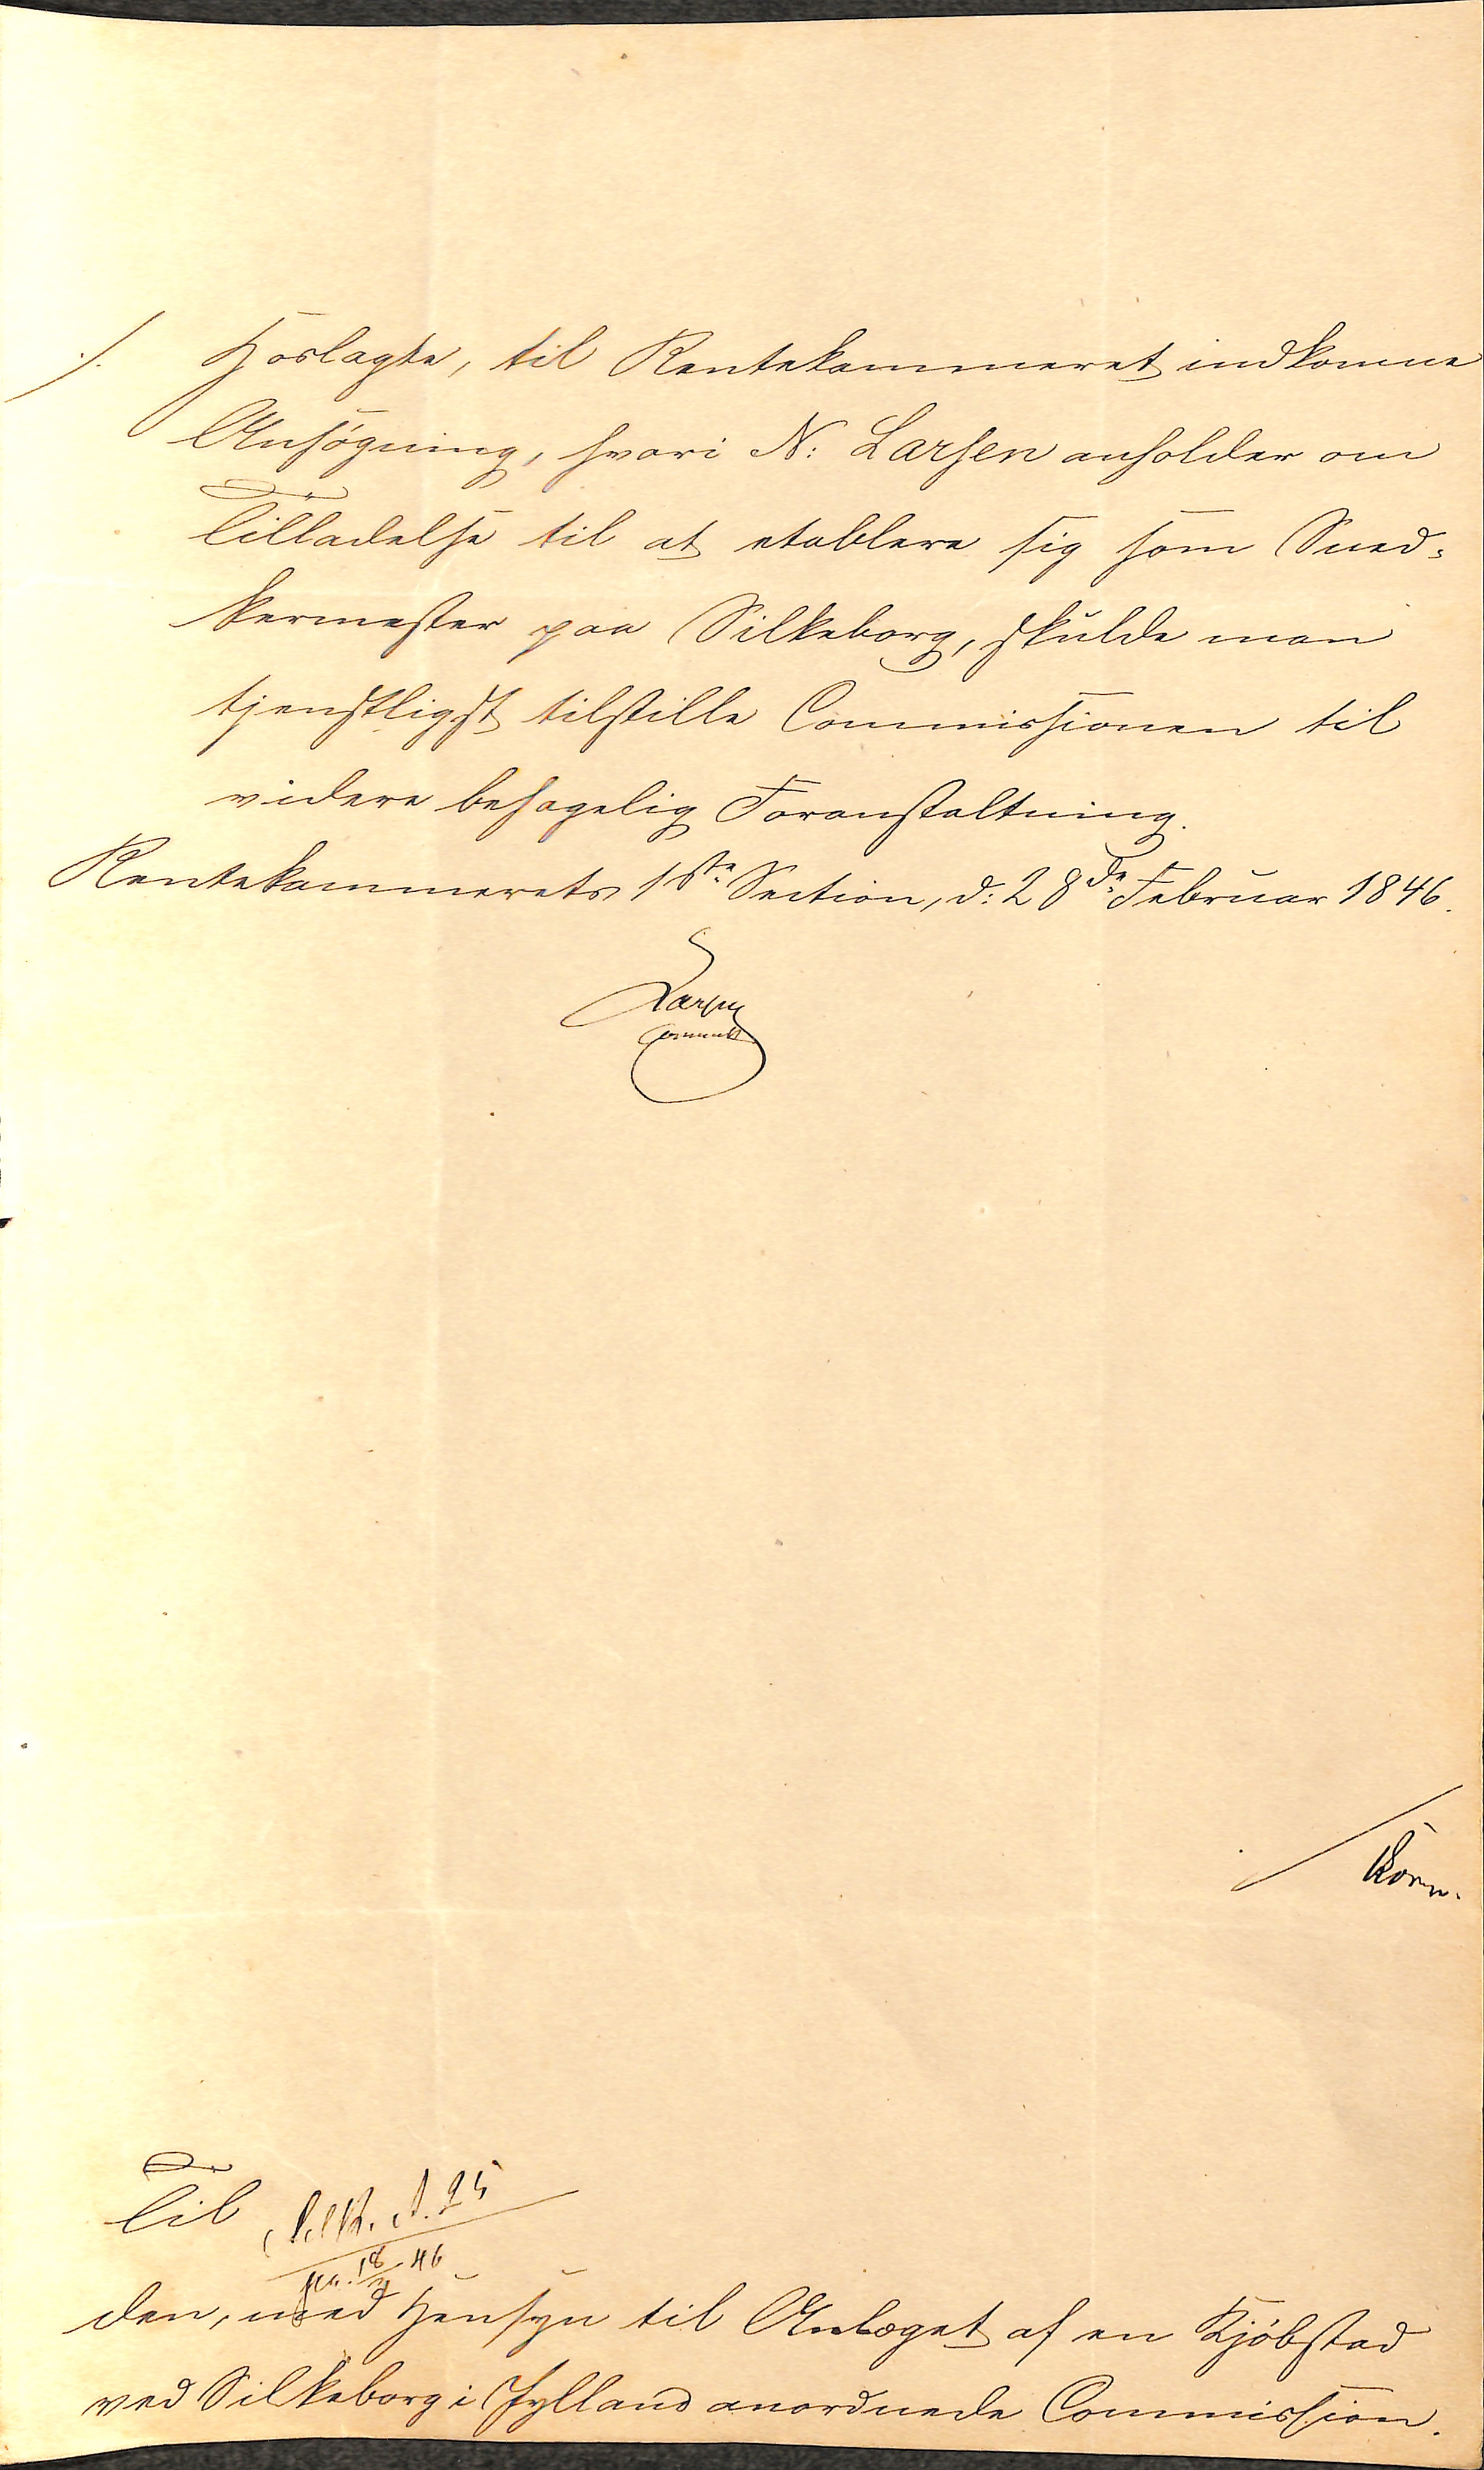 ./. Hoslagte, til Rentekammeret indkomne
Ansøgning, hvori N: Larsen anholder om
Tilladelse til at etablere sig som Sned-
kermester paa Silkeborg, skulde man
tjenstligst tilstille Commissionen til
videre behagelig Foranstaltning.
Rentekammerets 1ste Section, d: 28de Februar 1846.
Larsen
Korn.
Til
No. 25
18/3 46
den, med Hensyn til Anlæget af en Kjøbstad
ved Silkeborg i Jylland anordnede Commission.